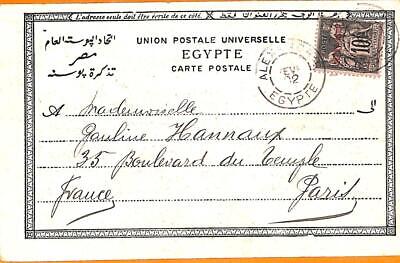 L'adresse seule doit être écrite de ce côté.
UNION POSTALE UNIVERSELLE
EGYPTE
CARTE POSTALE
اتحاد البوستة العام
مصر
تذكرة بوسته
ALE
EGYPTE
10
A Mademoiselle
الى
Pauline Hannaux
35 Boulevard du Temple
France Paris